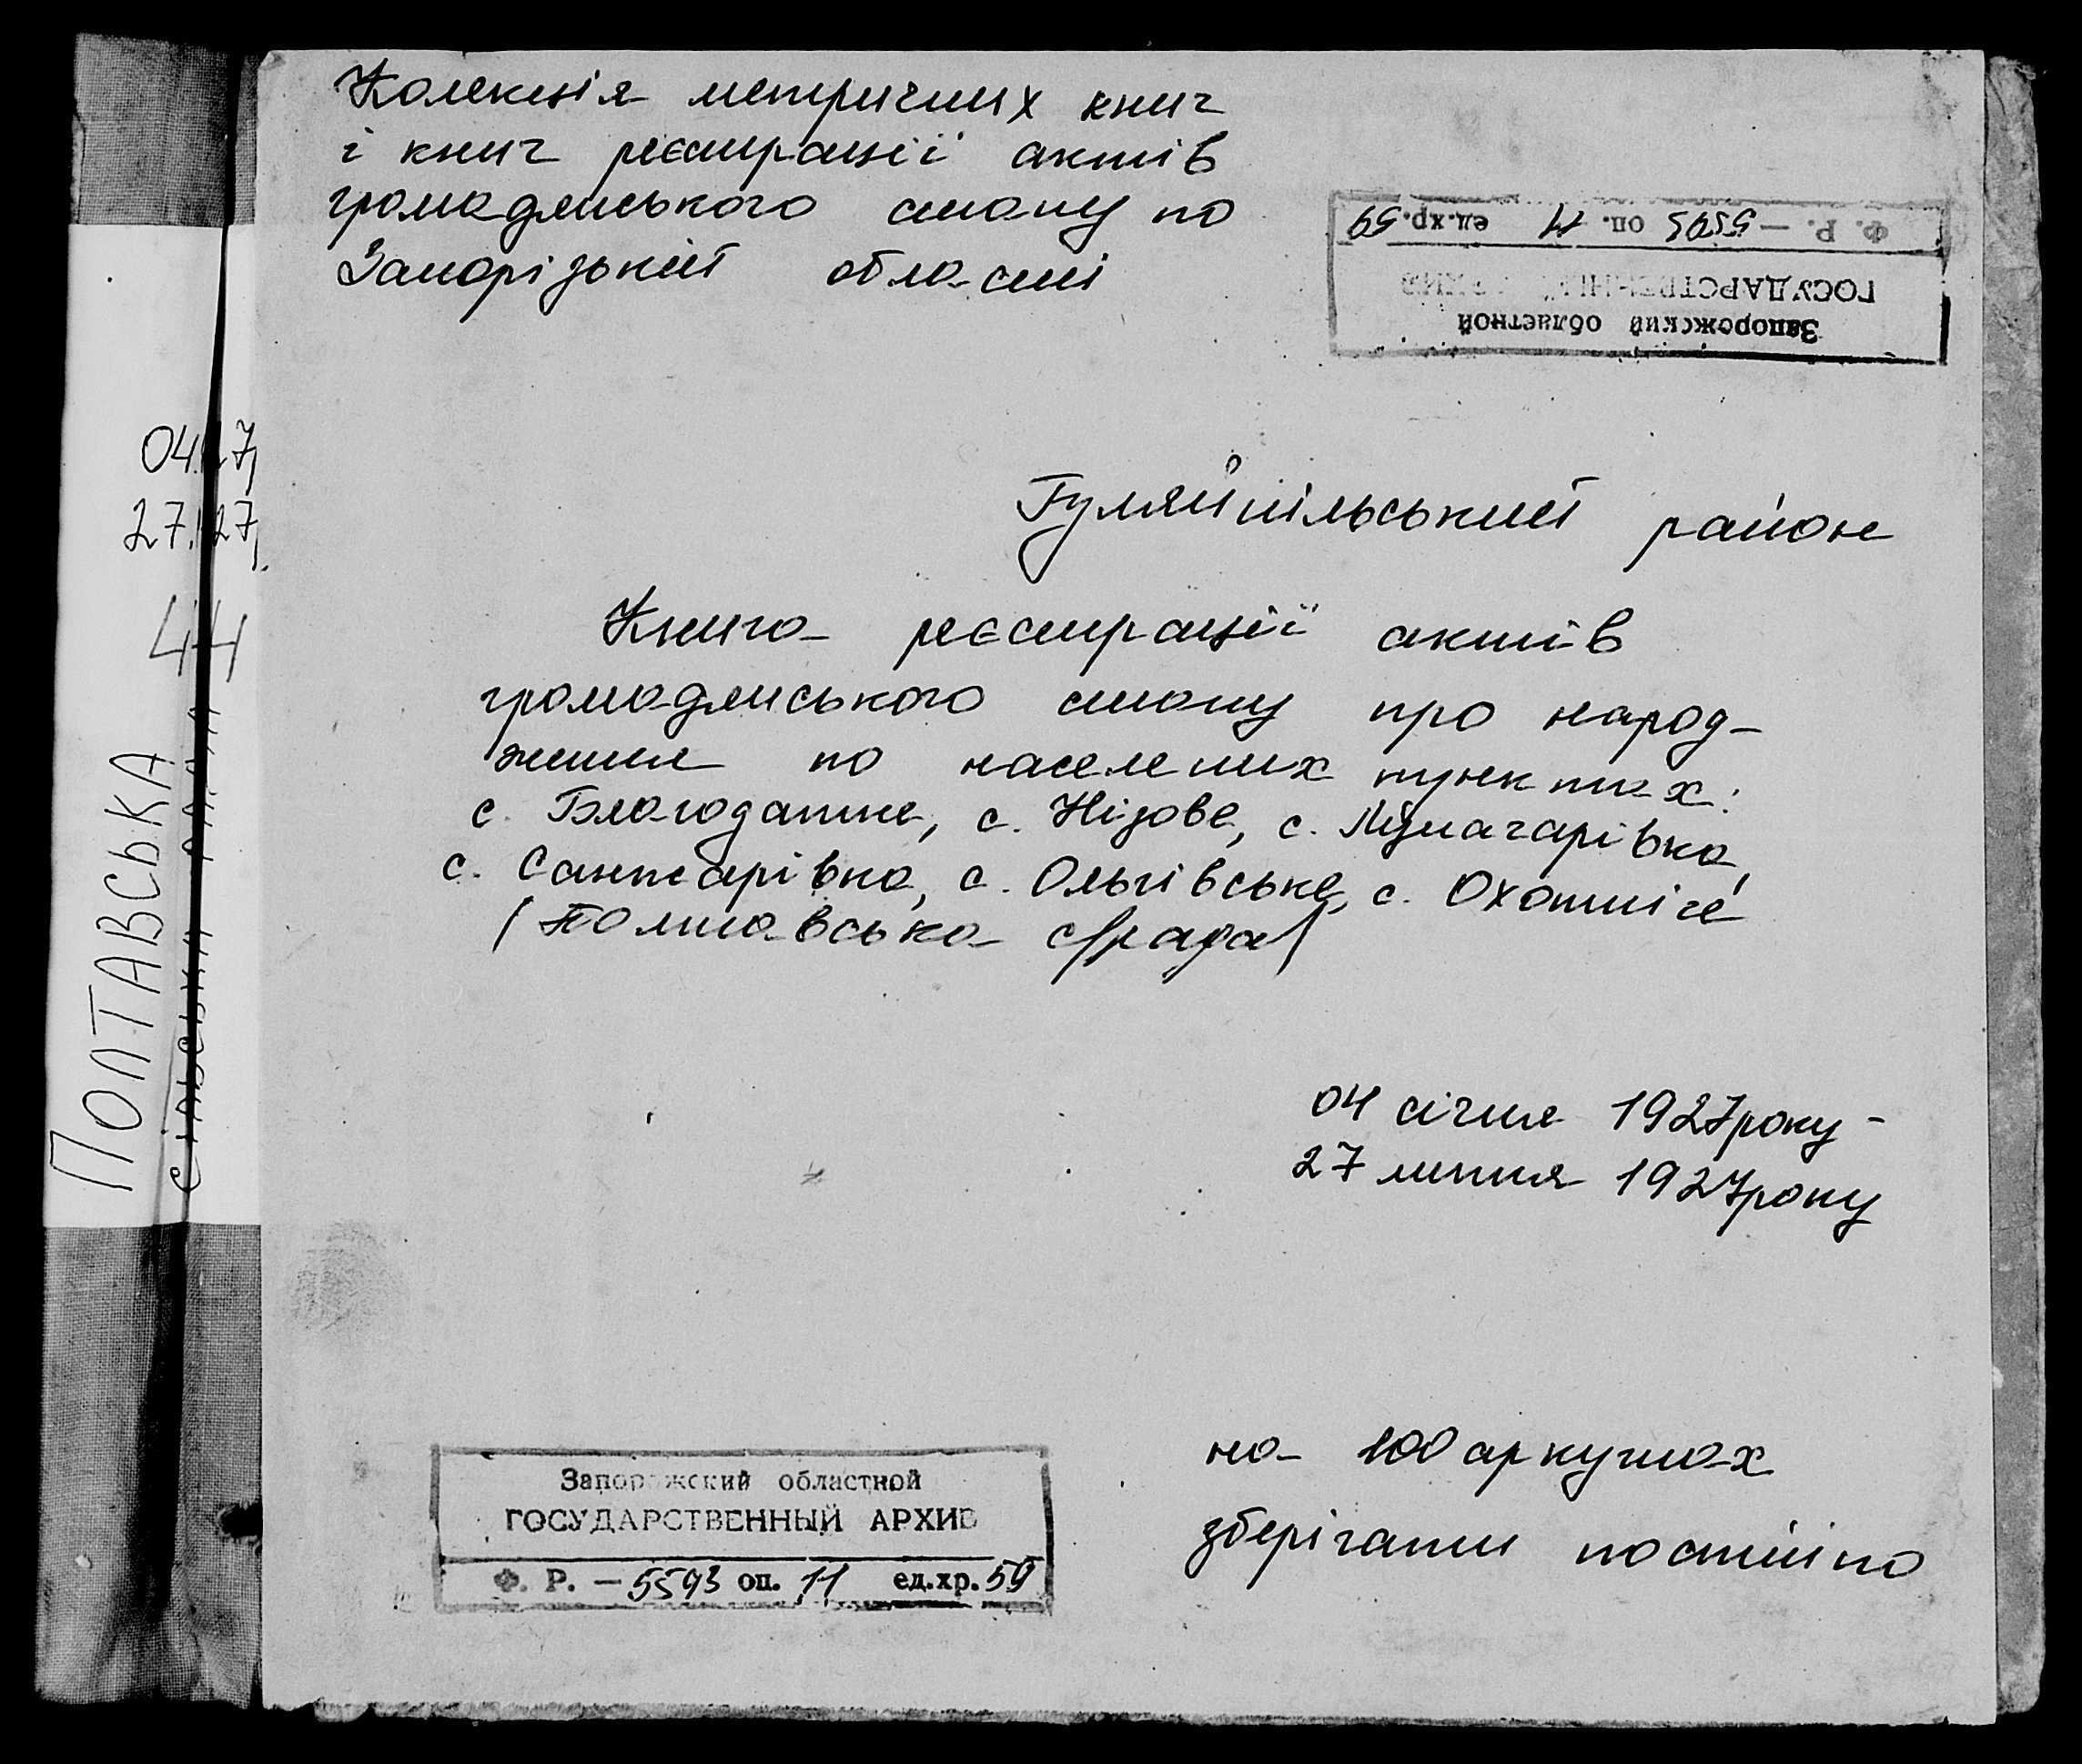 Колекція метричних книг
і книг реєстрації актів
громадянського стану по
Запорізькій області
Ф. Р. — 5593 оп. 11 ед.хр. 59
ГОСУДАРСТВЕННЫЙ АРХИВ
Запорожский областной
Гуляйпільський район
Книга реєстрації актів
громадянського стану про народ-
ження по населених пунктах:
с. Благодатне, с. Нізове, с.
с. Санжарівка, с. Ольгівське, с. Охотніче
(Полтавська с/рада)
04 січня 1927 року -
27 липня 1927 року
на 100 аркушах
зберігати постійно
Запорожский областной
ГОСУДАРСТВЕННЫЙ АРХИВ
Ф. Р. — 5593 оп. 11 ед.хр. 59
44
ПОЛТАВСЬКА
СІЛЬСЬКА РАДА